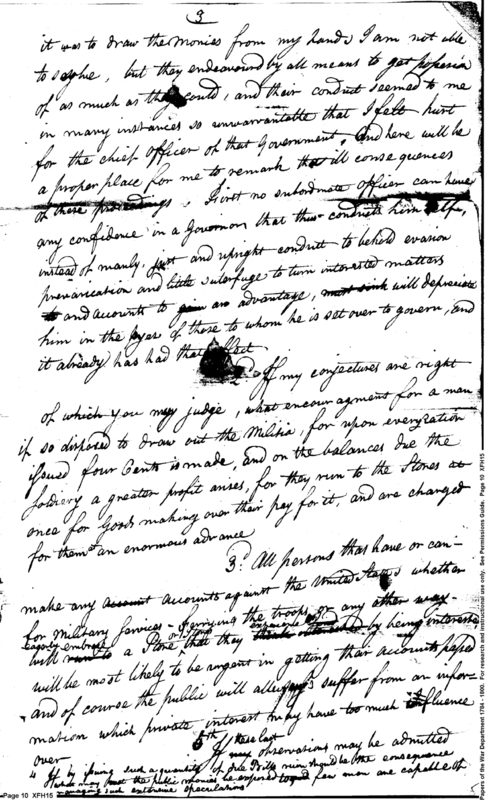 3
it was to draw the monies from my hands I am not able
to say, but they endeavoured by all means to get possession
of as much as they could, and their conduct seemed to me
in many instances so unwarrantable that I felt hurt
for the chief officer of that Government, and here will be
a proper place for me to remark the ill consequences
of these proceedings. First no subordinate officer can have
any confidence in a Governor that thus conducts himself,
instead of manly, just and upright conduct to behold evasion
prevarication and little subterfuge to turn interested matters
and accounts to an advantage, must sink will depreciate
him in the eyes of those to whom he is set over to govern, and
it already has had that effect
2d If my conjectures are right
of which you may judge, what encouragement for a man
if so disposed to draw out the Militia, for upon every ration
issued four Cents is made, and on the balances due the
soldiery a greater profit arises, for they run to the Stores at
once for Goods making over their pay for it, and are charged
for them at an enormous advance
3d All persons that have or can
make any account accounts against the United States whether
for Military Services - ferrying the troops or any other way
will run to a Store that they by being interested
will be most likely to be urgent in getting their accounts passed
and of course the public will allways suffer from an infor-
mation which private interest may have too much influence
over If these last observations may be admitted
If by issuing such a quantity of due Bills ruin should be the consequence
the public monies be exposed few men are capable of
managing such extensive speculations
Page 10 XFH15
Papers of the War Department 1784 - 1800. For research and instructional use only. See Permissions Guide. Page 10 XFH15